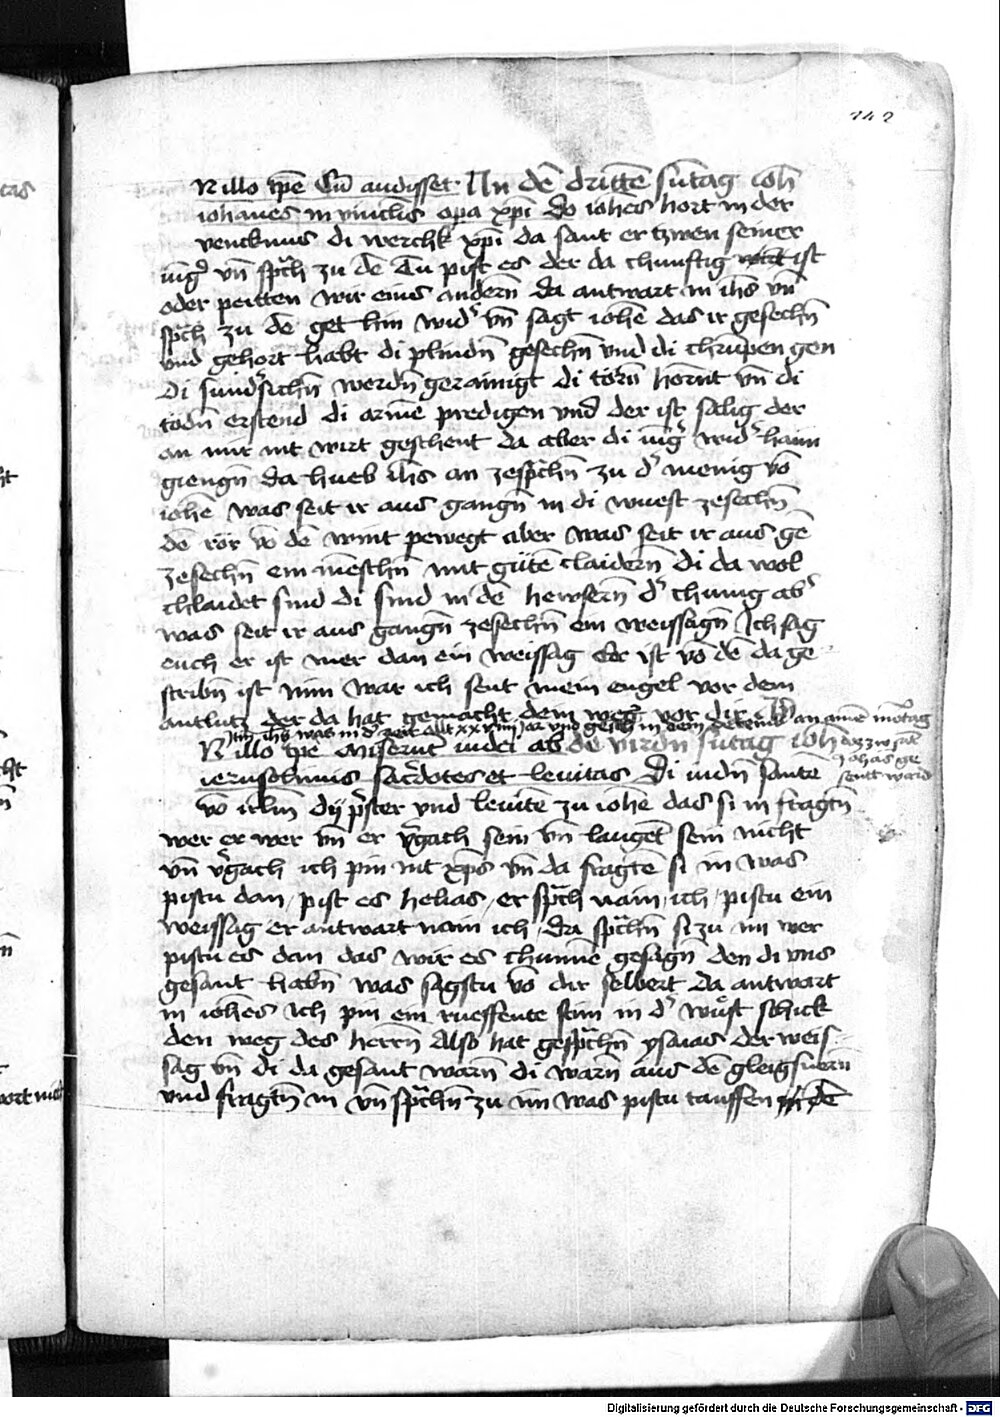 242
N illo tpe Cū audisset An dē dritten sūtag ioh
iohānes in vinclis opa xpi do iohes hort in der
vencknus di werchk xpi da sant er tzwen seiner
iūg' vn̄ sprch zu dē Du pist es der da chunftig ist
oder peitten wir eins andern̄ da antwart in ihs vn̄
sprch zu dē get hin wid' vn̄ sagt iohē das ir gesechn̄
vnd gehort habt di plindn̄ gesechn̄ vnd di chrūpen gen
di sunds'ichn̄ werdn̄ gerainigt di törn̄ hornt vn̄ di
todn̄ erstend di armē predigen vnd der ist sālig der
an mir nit wirt geschent da aber di iūg' wid' haim
giengn̄ da hueb ihs an zesprchn̄ zu d' menig vō
iohē was seit ir aus gangn̄ in di wuest zesechn̄
dē rör vō dē wint pewegt aber was seit ir aus gē
zesechn̄ ein mēschn̄ mit gūtē claidern̄ di da wol
chlaidet sind di sind in dē hewsern̄ d' chunig ab'
was seit ir aus gangn̄ zesechn̄ ein weissagn̄ Ich sag
euch er ist mer dan ein weissag Er ist vō dē da ge
scribn̄ ist Nim war ich sent mein engel vor dem
antlutz der da hat gemacht dem weg vor dir
ihs was in d' zeit alt xx viiij iar vnd gesch in dem decemb' an ainē mōtag
N illo tpe Miserūt iudei ab dē virdn̄ sūtag ioh
das zw sāt
Johās ge
sentt ward
ierusolimis sac'dotes et levitas Di iudn̄ sante
vō irlm̄ dy p'ster vnd levitē zu iohē das si in fragtn̄
wer er wer vn̄ er v'gach sein vn̄ laugēt sein nicht
vn̄ v'gach ich pin nit xps vn̄ da fragtē si in was
pistu dan / pist es helias / er sprch nain ich / pistu ein
weissag er antwart nain ich / da sprchn̄ si zu im wer
pistu es dan das wir es chunnē gesagn̄ den di vns
gesant habn̄ was sagstu vō dir selbert da antwart
in iohes Ich pin ein rueffente stim in d' wůst schick
den weg des herrn̄ Also hat gesprchn̄ ysaias der weis
sag vn̄ di da gesant warn̄ di warn̄ aus dē gleigsnern̄
vnd fragtn̄ in vn̄ sprchn̄ zu im was pistu tauffen
Digitalisierung gefördert durch die Deutsche Forschungsgemeinschaft - DFG